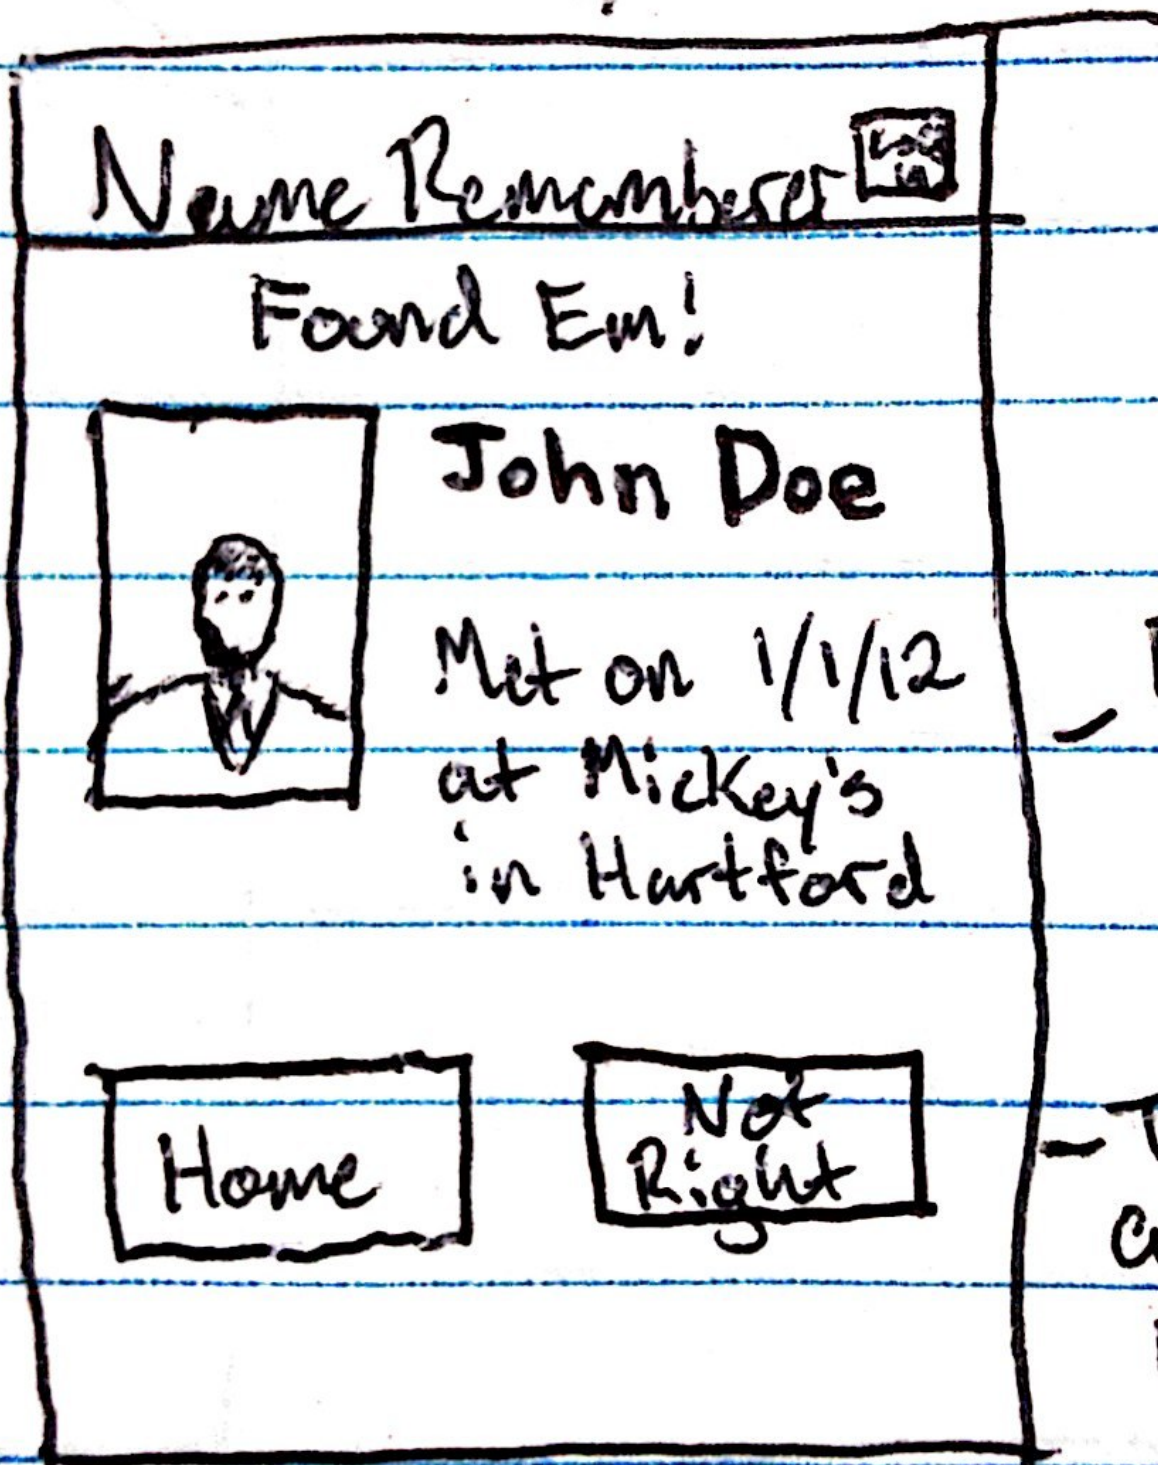 Name Rememberer
Log
in
Found Em!
John Doe
Met on 1/1/12
at Mickey's
in Hartford
Home
Not
Right